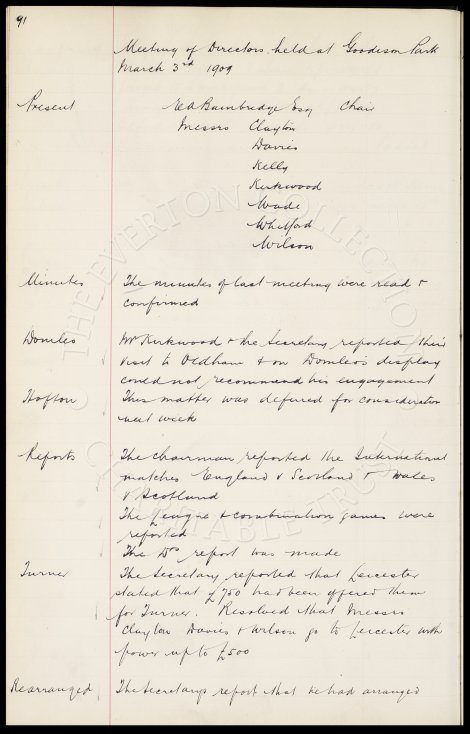 91
Meeting of Directors held at Goodison Park
March 3rd 1909
Present W A Bainbridge Esq Chair
Messrs Clayton
Davies
Kelly
Kirkwood
Wade
Whitford
Wilson
Minutes The minutes of last meeting were read &
confirmed
Domleo Mr Kirkwood & the Secretary reported their
visit to Oldham & on Domleo's display
could not recommend his engagement
Hofton This matter was deferred for consideration
next week
Reports The Chairman reported the International
matches England v Scotland & Wales
v Scotland
The League & combination games were
reported
The Drs report was made
Turner The Secretary reported that Leicester
stated that £750 had been offered them
for Turner. Resolved that Messrs
Clayton Davies & Wilson go to Leicester with
power up to £500
Rearranged The Secretarys report that he had arranged
THE EVERTON COLLECTION
CHARITABLE TRUST